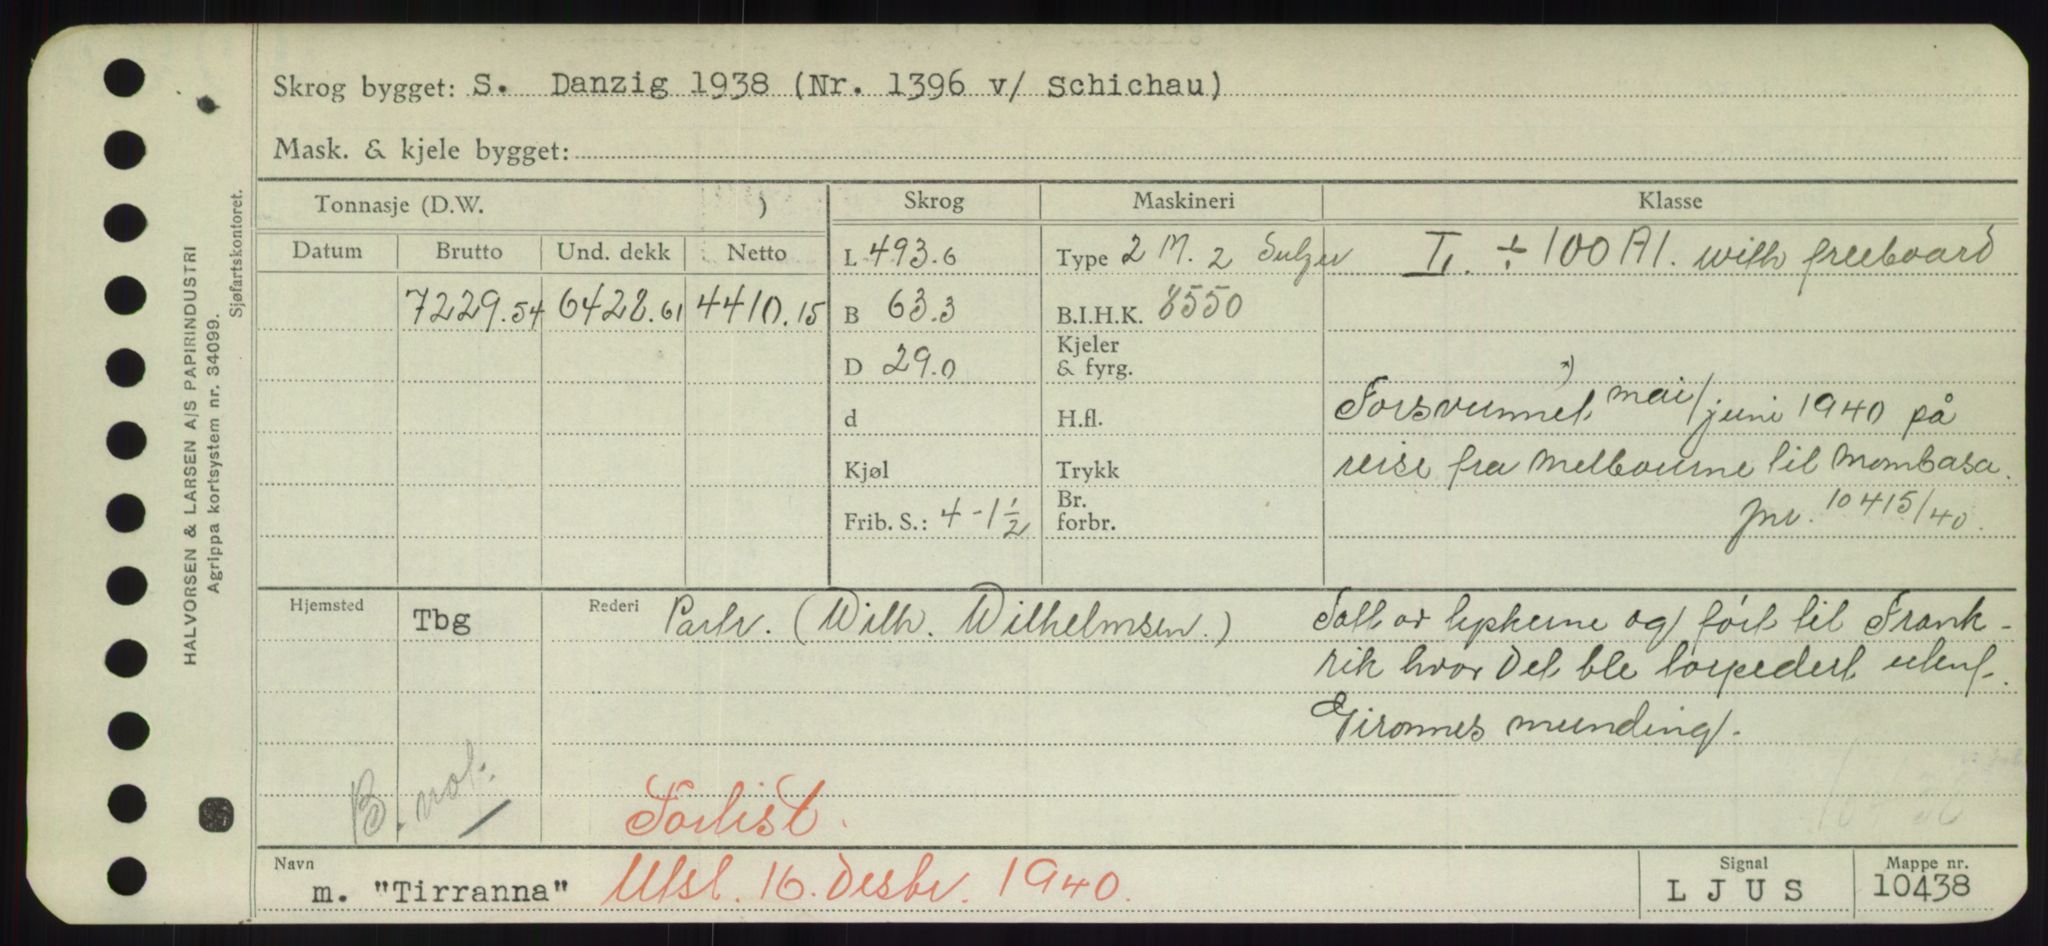 Skrog bygget: S. Danzig 1938 (Nr. 1396 v/ Schichau)
Mask. & kjele bygget:
HALVORSEN & LARSEN A/S PAPIRINDUSTRI
Agrippa kortsystem nr. 34099.
Sjøfartskontoret.
Tonnasje (D.W. ) Skrog Maskineri Klasse
Datum Brutto Und. dekk Netto L 493.6 Type 2 M. 2 Sulzer I. ÷ 100 A1. with freeboard
7229.54 6428.61 4410.15 B 63.3 B.I.H.K. 8550
D 29.0 Kjeler & fyrg.
d H.fl. Forsvunnet *) mai/juni 1940 på
Kjøl Trykk reise fra Melbourne til Mombasa.
Frib. S.: 4-1½ Br. forbr. Jnr. 10415/40.
Hjemsted Tbg Rederi Partr. (Wilh. Wilhelmsen.) Tatt av tyskerne og ført til Frank-
rik hvor det ble torpedert utenf.
Gironnes munding.
B. not.
Forlist.
Navn m. "Tirranna" Utsl. 16. Desbr. 1940. Signal LJUS Mappe nr. 10438